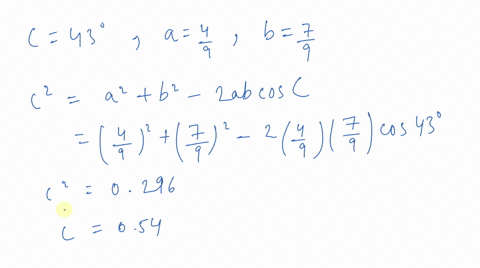 C = 43° , a = 4/9 , b = 7/9
c² = a² + b² - 2ab cos C
= (4/9)² + (7/9)² - 2(4/9)(7/9) cos 43°
c² = 0.296
c = 0.54